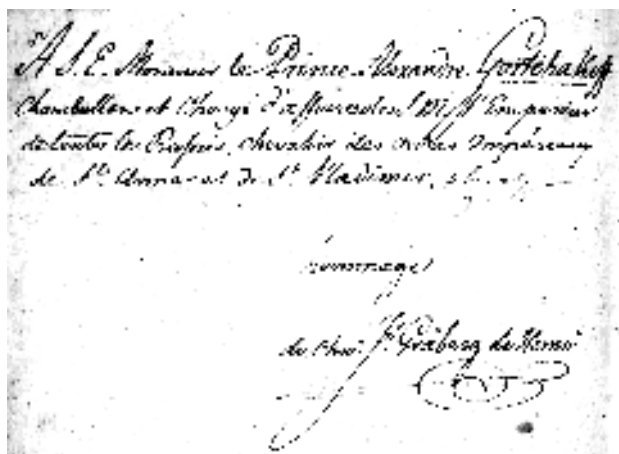 A S. E. Monsieur le Prince Alexandre Gortchakoff
Chambellan et Chargé d'affaires de S. M. l'Empereur
de toutes les Russies, chevalier des ordres Impériaux
de Ste Anne et de St Vladimir,
hommage
de Chev. J. Gråberg de Hemsö